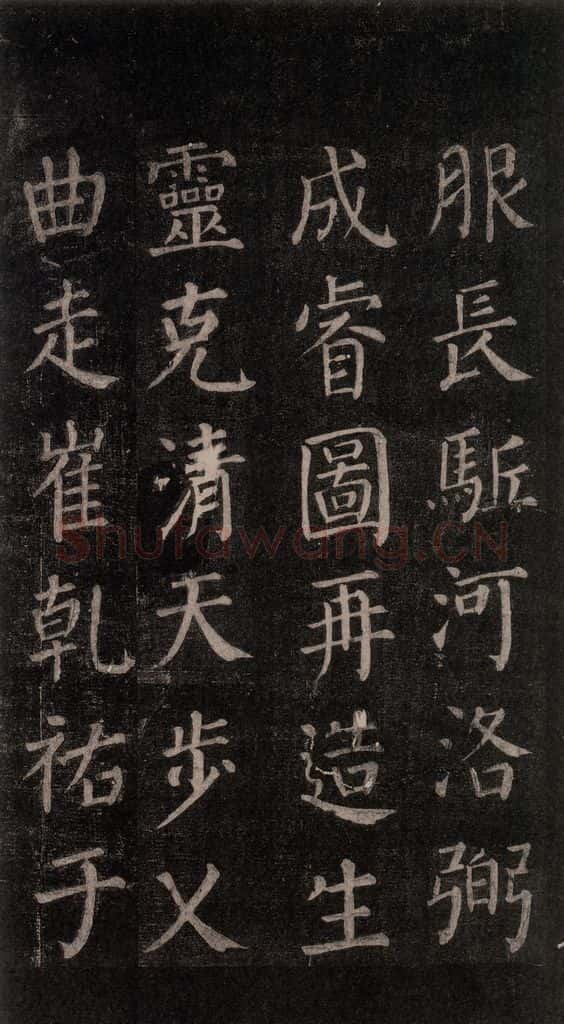 服長駈河洛弼
成睿圖再造生
靈克清天步乂
曲走崔乾祐于
Shufawang.CN